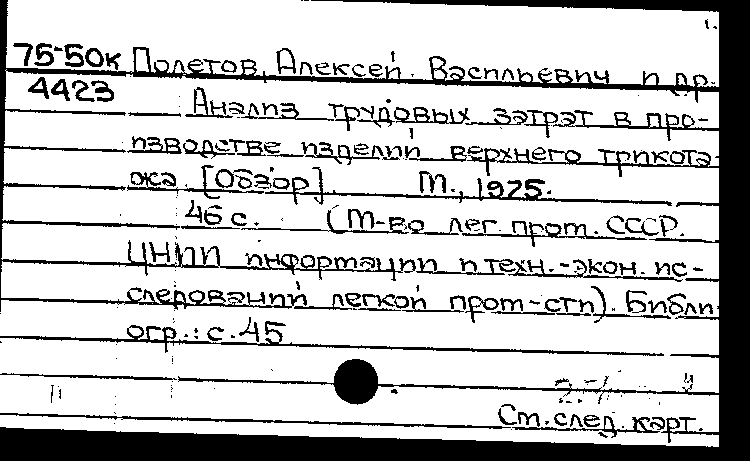 1.
75-50к Полетов, Алексей Васильевич и др.
4423 Анализ трудовых затрат в про-
изводстве изделий верхнего трикота-
жа. [Обзор]. М., 1975.
46 с. (М-во лег. пром. СССР.
ЦНИИ информации и техн.-экон. ис-
следований легкой пром-сти). Библи-
огр.: с. 45
См. след. карт.